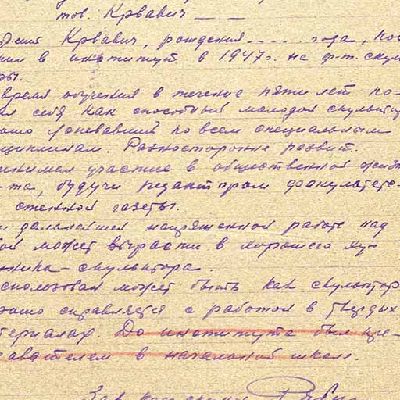 тов. Крвавич — —
Крвавич, рождения ..... года, пос
в институт в 1947г. на ф-т скуль
ры.
Время обучения в течение пяти лет по-
ал себя как способный молодой скульптор
успевавший по всем специальным
циплинам. Разносторонне развит.
принимал участие в общественной жизни
та, будучи редактором факультетс-
стенной газеты.
и дальнейшей напряженной работе над
ой может вырасти в хорошего ху-
жника-скульптора.
использован может быть как скульптор
рошо справляется с работой в твердых
териалах. До института был пре-
авателем в начальной школе.